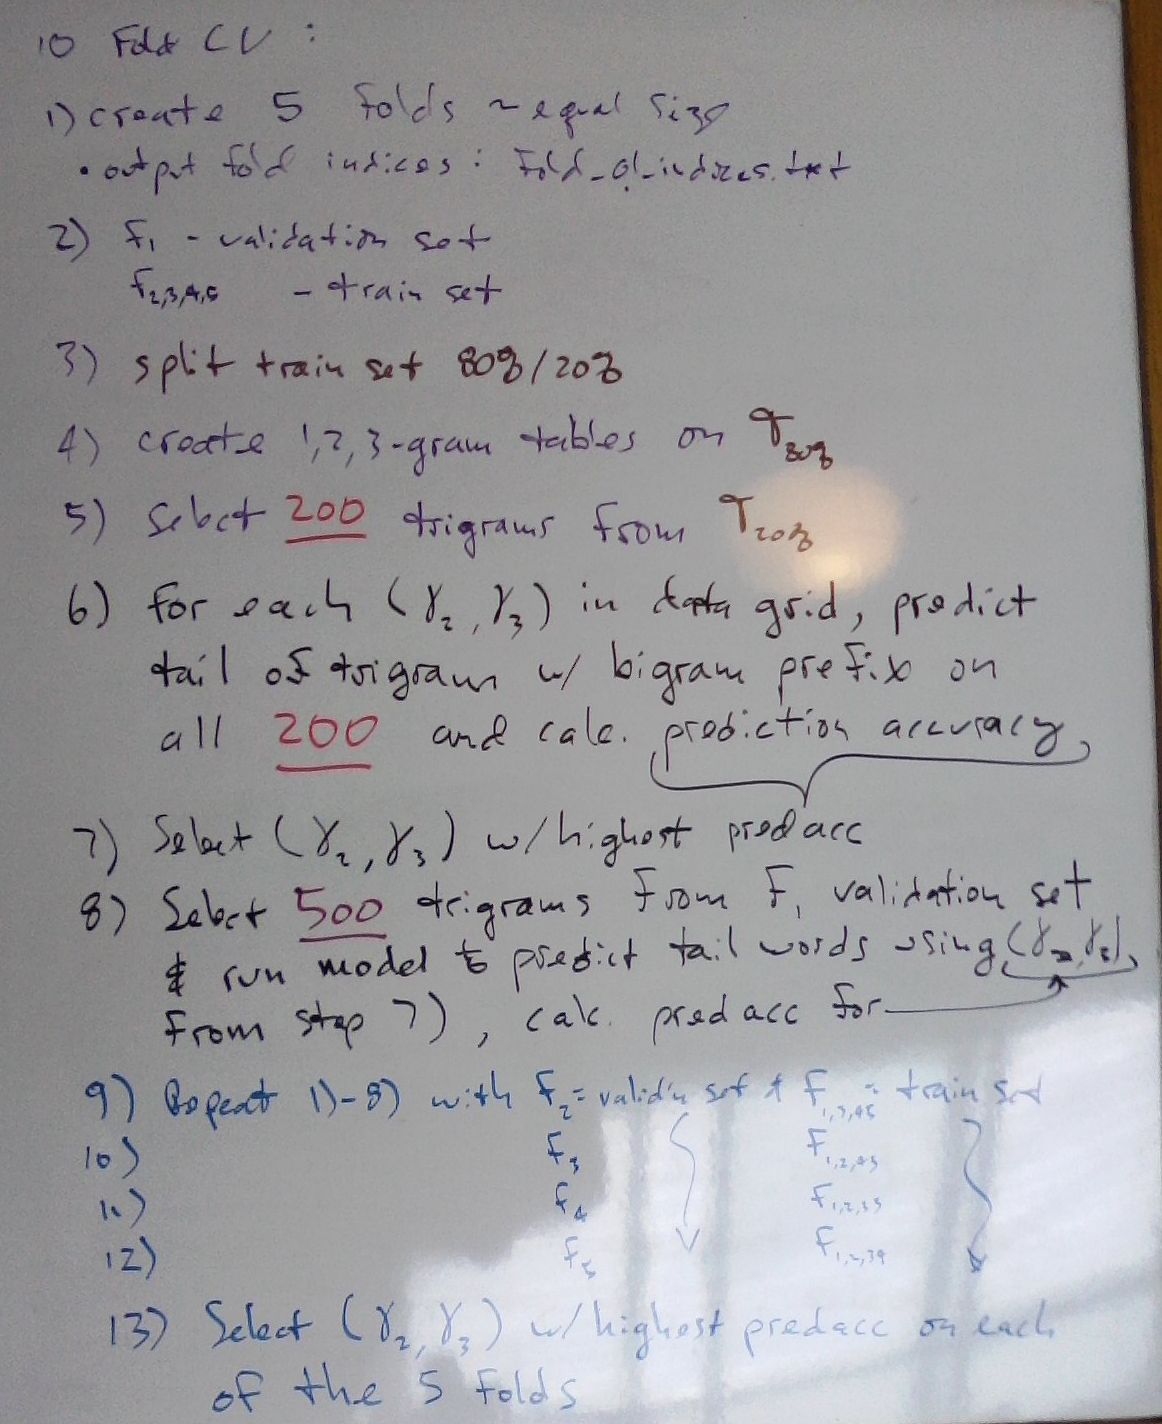 10 Fold CV :
1) create 5 folds ~ equal size
• output fold indices : fold_01_indices.txt
2) F₁ - validation set
F₂,₃,₄,₅ - train set
3) split train set 80%/20%
4) create 1,2,3-gram tables on T₈₀%
5) Select 200 trigrams from T₂₀%
6) for each (γ₂, γ₃) in data grid, predict
tail of trigram w/ bigram prefix on
all 200 and calc. prediction accuracy
7) Select (γ₂, γ₃) w/ highest predacc
8) Select 500 trigrams from F₁ validation set
& run model to predict tail words using (γ₂, γ₃)
from step 7), calc. predacc for
9) Repeat 1)-8) with F₂ = valid'n set & F₁,₃,₄,₅ = train set
10) F₃ F₁,₂,₄,₅
11) F₄ F₁,₂,₃,₅
12) F₅ F₁,₂,₃,₄
13) Select (γ₂, γ₃) w/ highest predacc on each
of the 5 folds